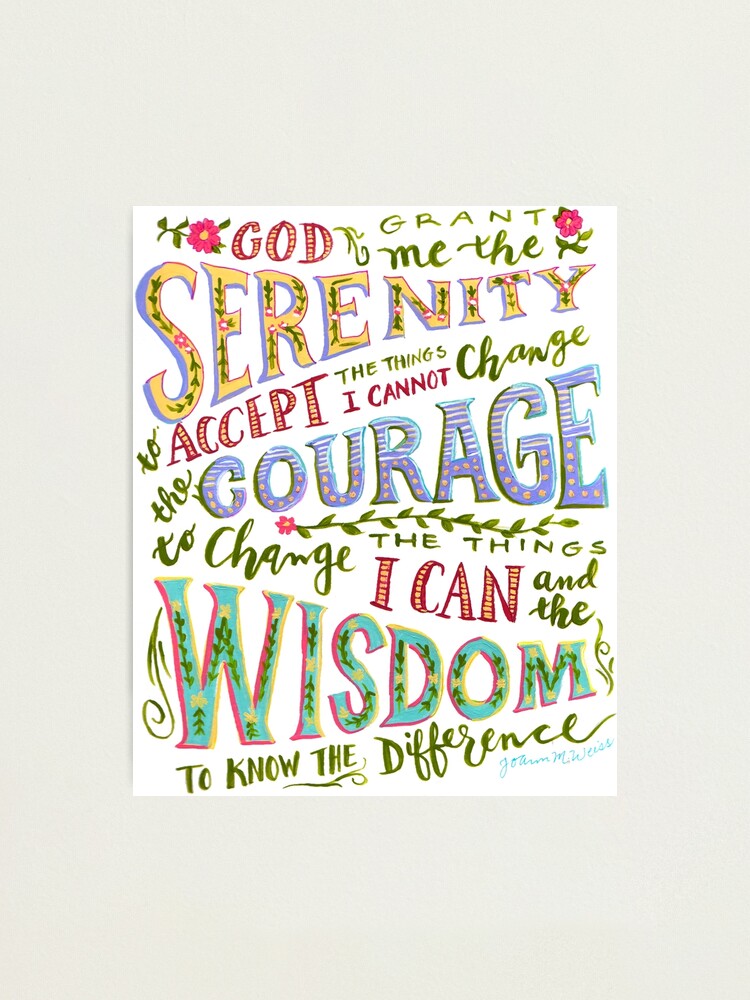 GOD GRANT
me the
SERENITY
to ACCEPT THE THINGS
I CANNOT Change
the COURAGE
to Change THE THINGS
I CAN and
the
WISDOM
TO KNOW THE Difference
Joann M. Weiss